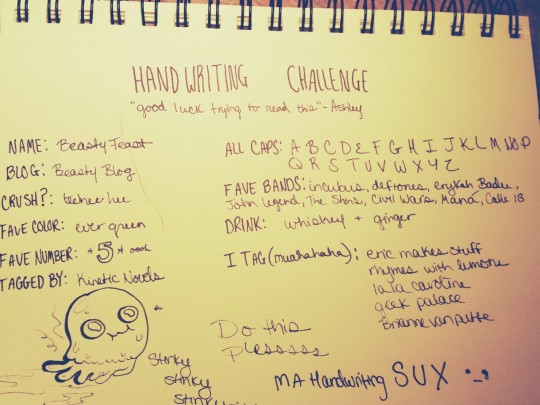 HANDWRITING CHALLENGE
"good luck trying to read this" - Ashley
NAME: Beasty Feast
BLOG: Beasty Blog
CRUSH?: teehee hee
FAVE COLOR: ever green
FAVE NUMBER: *5* oook
TAGGED BY: Kinetic Novels
ALL CAPS: A B C D E F G H I J K L M N O P
Q R S T U V W X Y Z
FAVE BANDS: incubus, deftones, erykah Badu,
John Legend, The Shins, Civil Wars, Maná, Calle 13
DRINK: whiskey + ginger
I TAG (muahahaha): eric makes stuff
rhymes with lemone
lala caroline
geek palace
Brianne van putte
Do this
plesssss
Stinky
stinky
stinky
MA Handwriting SUX